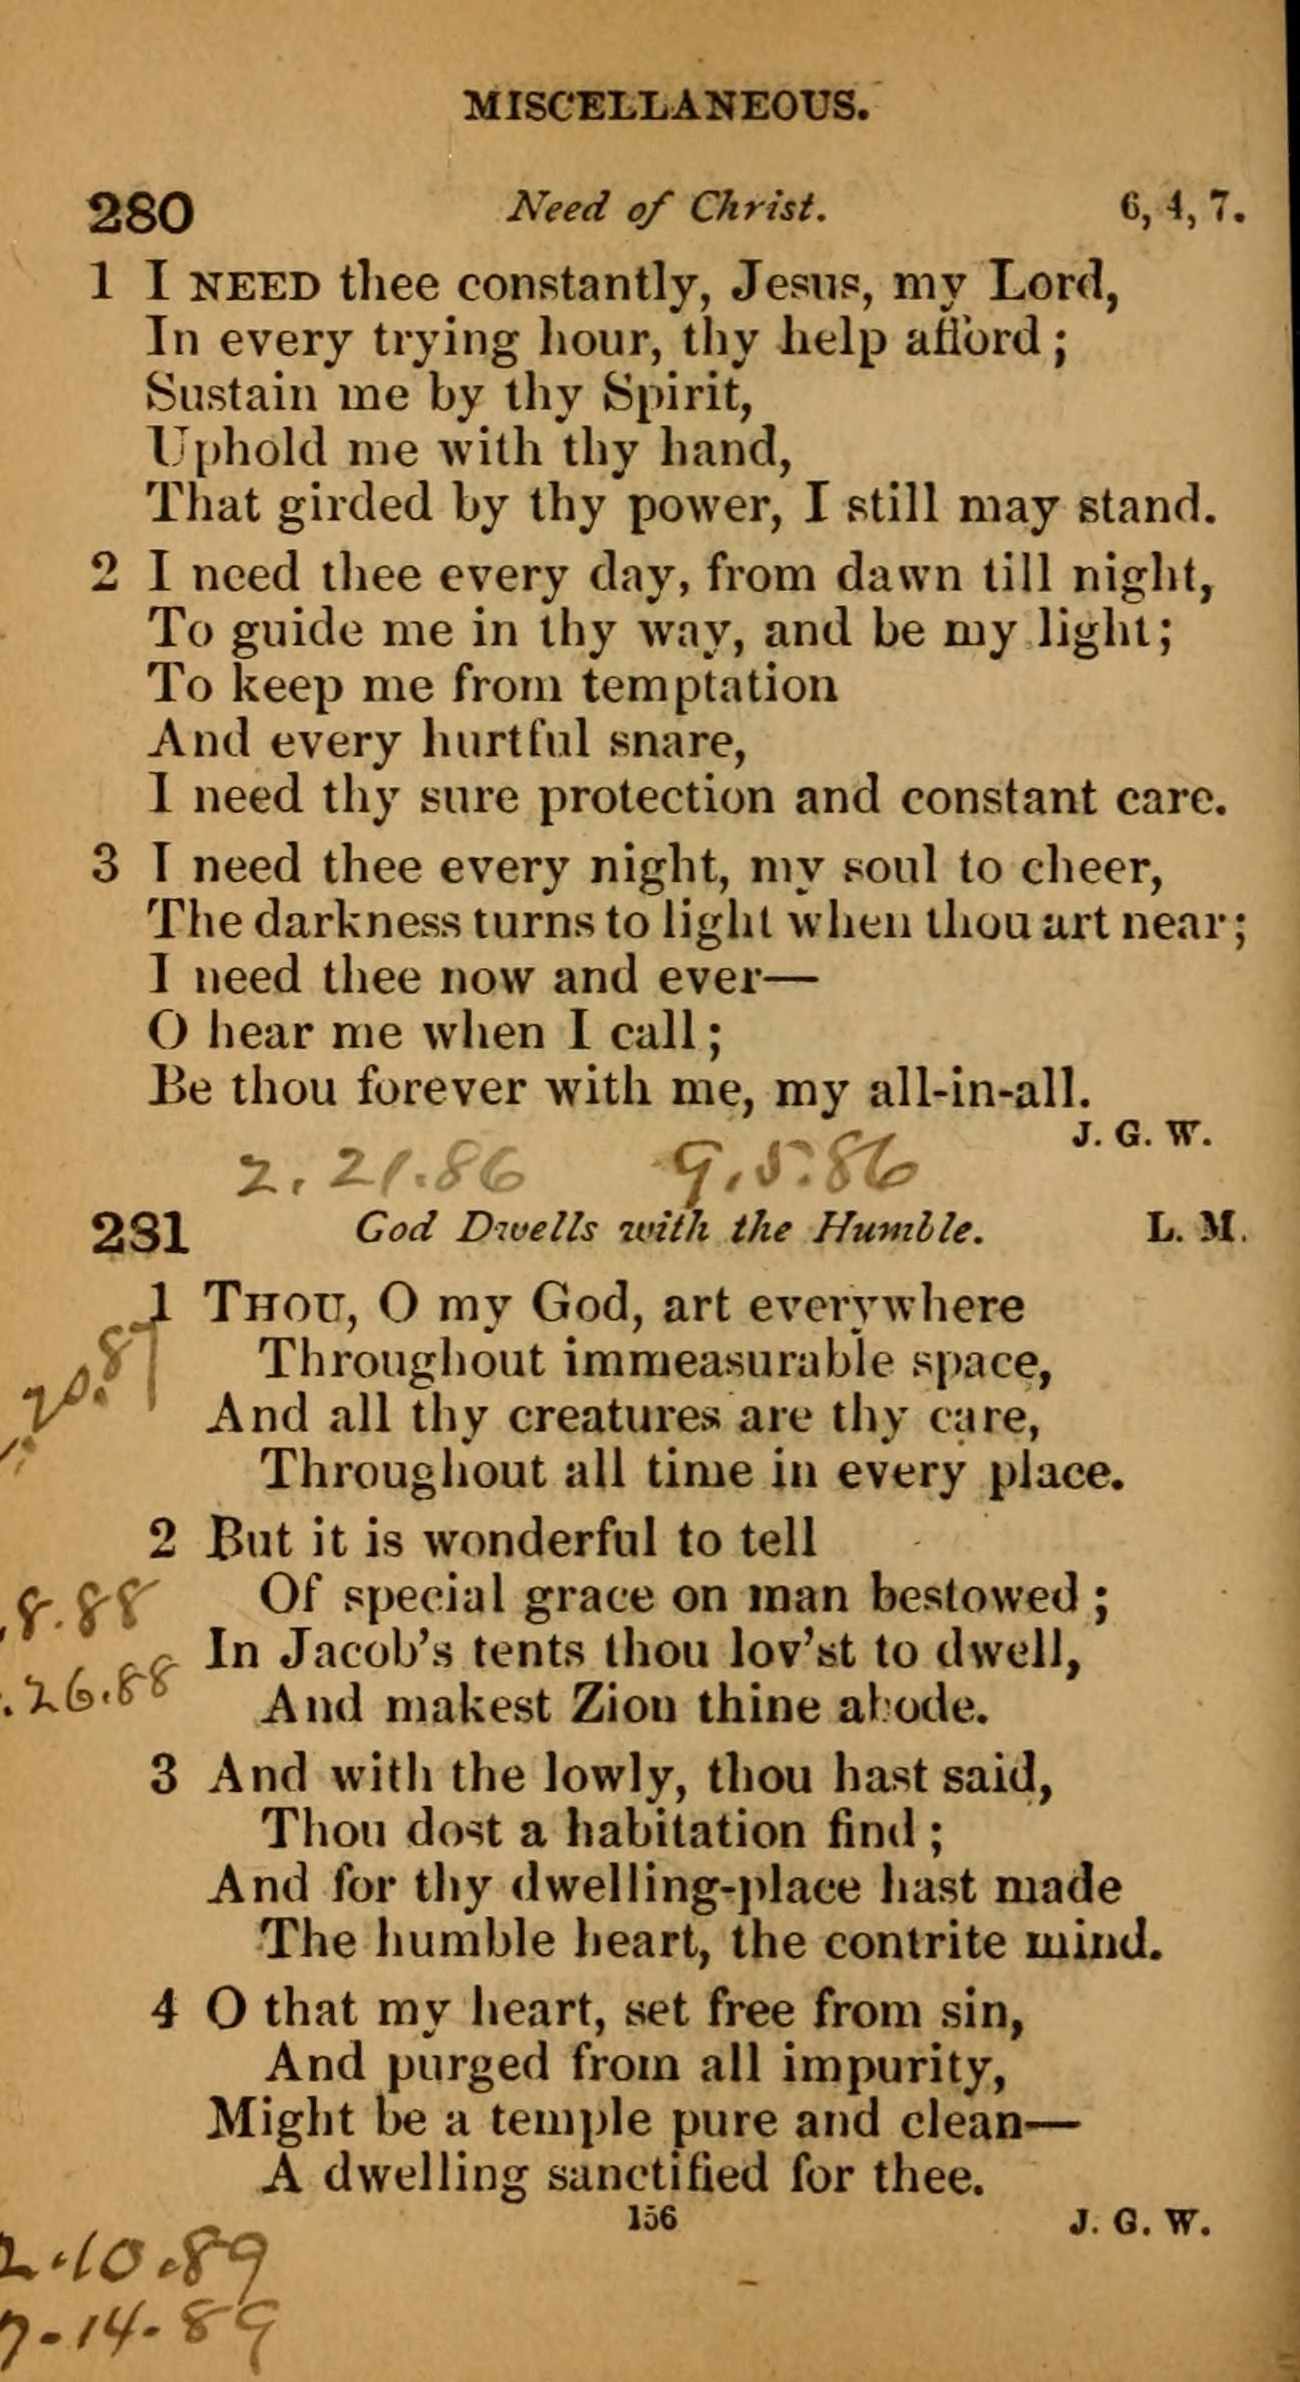 MISCELLANEOUS.
280 Need of Christ. 6, 4, 7.
1 I NEED thee constantly, Jesus, my Lord,
In every trying hour, thy help afford;
Sustain me by thy Spirit,
Uphold me with thy hand,
That girded by thy power, I still may stand.
2 I need thee every day, from dawn till night,
To guide me in thy way, and be my light;
To keep me from temptation
And every hurtful snare,
I need thy sure protection and constant care.
3 I need thee every night, my soul to cheer,
The darkness turns to light when thou art near;
I need thee now and ever—
O hear me when I call;
Be thou forever with me, my all-in-all.
J. G. W.
2.21.86 9.5.86
281 God Dwells with the Humble. L. M.
1 THOU, O my God, art everywhere
Throughout immeasurable space,
20.87
And all thy creatures are thy care,
Throughout all time in every place.
2 But it is wonderful to tell
Of special grace on man bestowed;
.8.88
In Jacob's tents thou lov'st to dwell,
.26.88
And makest Zion thine abode.
3 And with the lowly, thou hast said,
Thou dost a habitation find;
And for thy dwelling-place hast made
The humble heart, the contrite mind.
4 O that my heart, set free from sin,
And purged from all impurity,
Might be a temple pure and clean—
A dwelling sanctified for thee.
156 J. G. W.
2.10.89
7-14-89